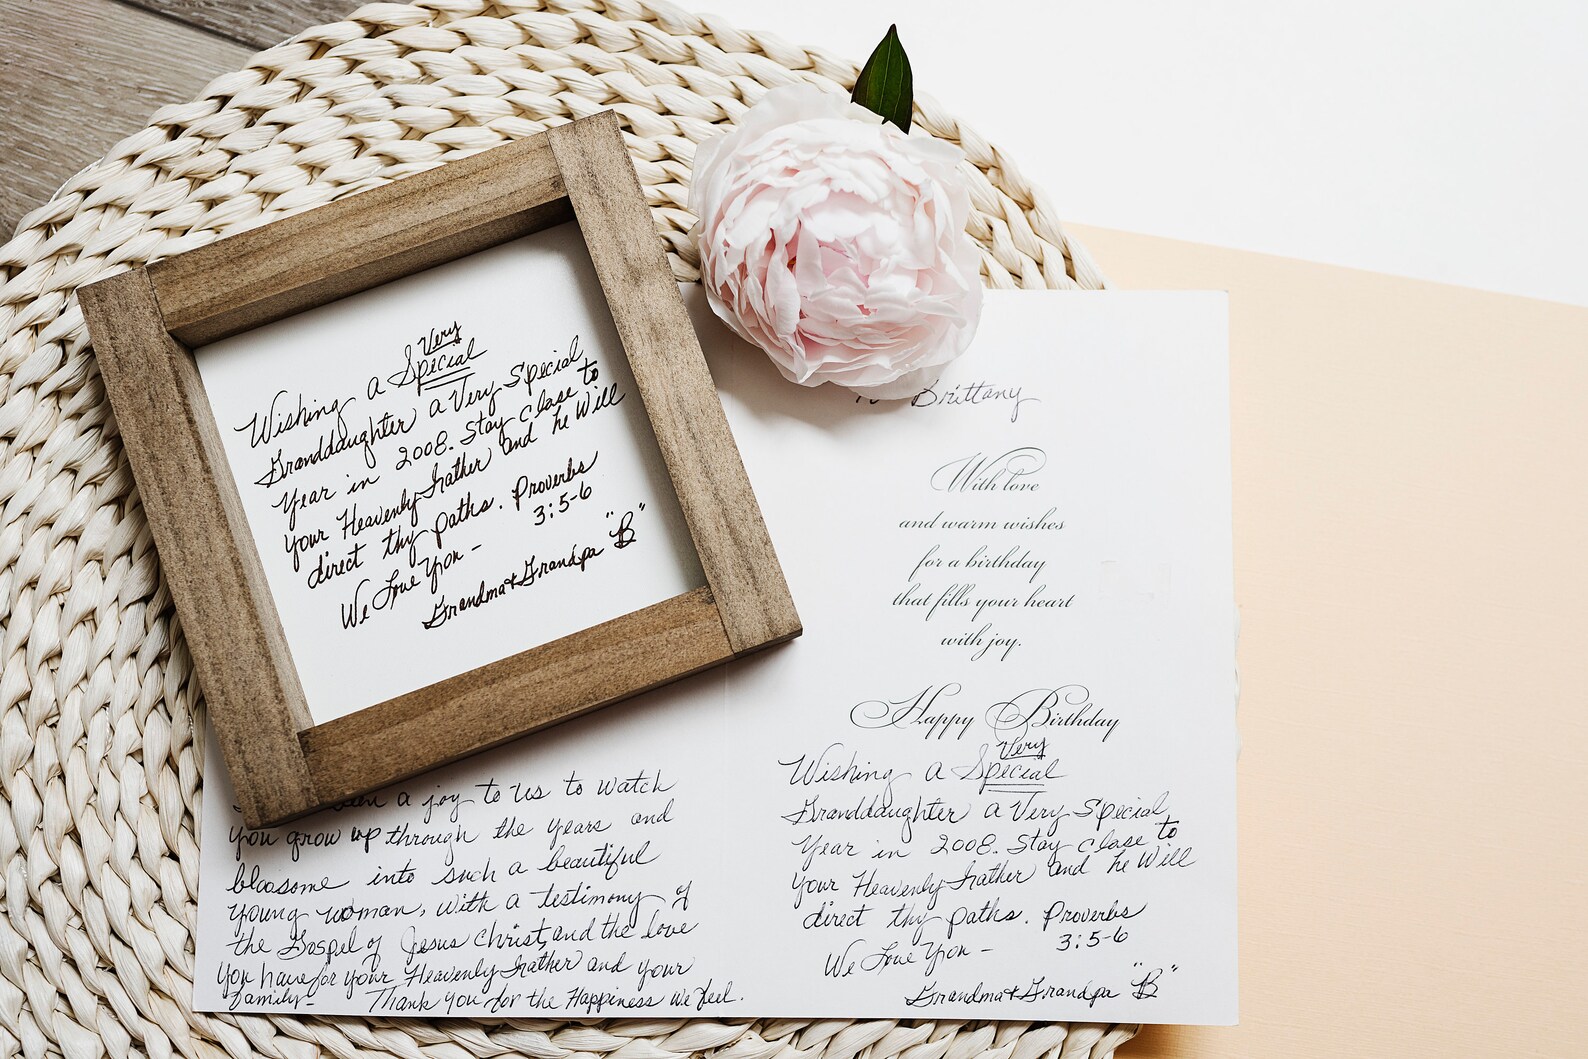 Very
Wishing a Special
Granddaughter a Very Special
Year in 2008. Stay close to
your Heavenly Father and he Will
direct thy paths. Proverbs
3:5-6
We Love You -
Grandma & Grandpa "B"
Brittany
With love
and warm wishes
for a birthday
that fills your heart
with joy.
Happy Birthday
Very
Wishing a Special
Granddaughter a Very Special
Year in 2008. Stay close to
your Heavenly Father and he Will
direct thy paths. Proverbs
3:5-6
We Love You -
Grandma & Grandpa "B"
a joy to us to watch
you grow up through the years and
bloosome into such a beautiful
young woman, with a testimony of
the Gospel of Jesus Christ, and the love
you have for your Heavenly Father and your
Family - Thank you for the Happiness we feel.